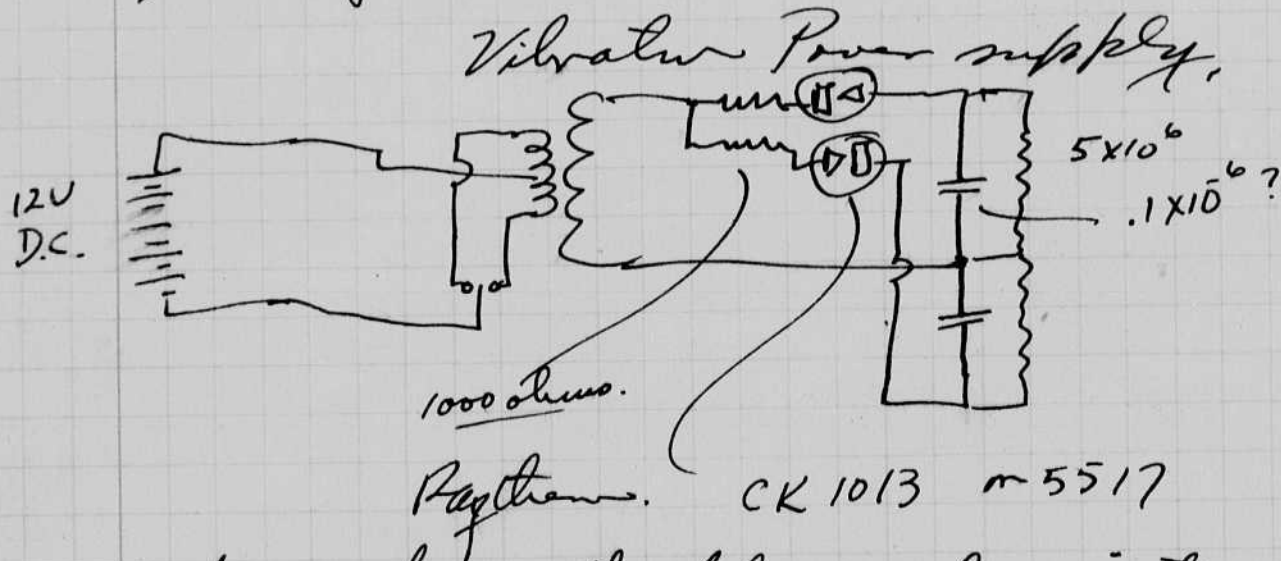 Vibrator Power supply.
12V
D.C.
5x10⁶
.1x10⁻⁶ ?
1000 ohms.
Raytheon. CK 1013 or 5517